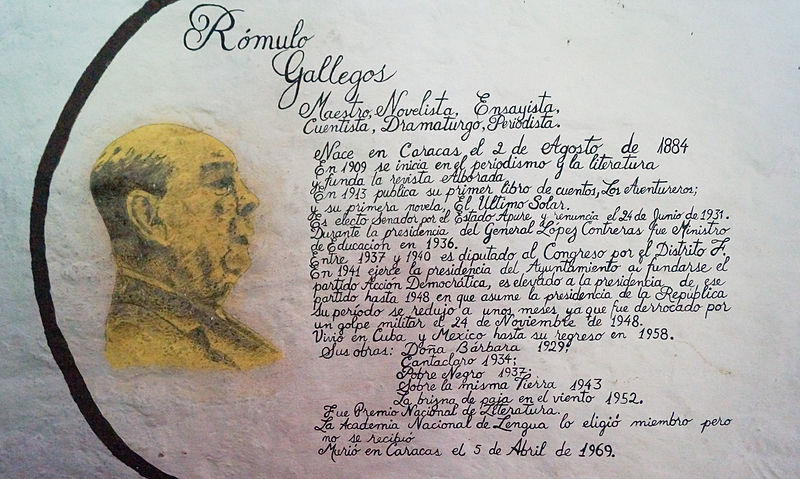 Rómulo
Gallegos
Maestro, Novelista, Ensayista,
Cuentista, Dramaturgo, Periodista.
Nace en Caracas el 2 de Agosto de 1884
En 1909 se inicia en el periodismo y la literatura
y funda la revista Alborada
En 1913 publica su primer libro de cuentos, Los Aventureros;
y su primera novela, El Ultimo Solar.
Es electo Senador por el Estado Apure, y renuncia el 24 de Junio de 1931.
Durante la presidencia del General López Contreras fue Ministro
de Educación en 1936.
Entre 1937 y 1940 es diputado al Congreso por el Distrito F.
En 1941 ejerce la presidencia del Ayuntamiento al fundarse el
partido Acción Democrática, es elevado a la presidencia de ese
partido hasta 1948 en que asume la presidencia de la República
su período se redujo a unos meses ya que fue derrocado por
un golpe militar el 24 de Noviembre de 1948.
Vivió en Cuba y Mexico hasta su regreso en 1958.
Sus obras: Doña Bárbara 1929;
Cantaclaro 1934;
Pobre Negro 1937;
Sobre la misma Tierra 1943
La brizna de paja en el viento 1952.
Fue Premio Nacional de Literatura.
La Academia Nacional de Lengua lo eligió miembro pero
no se recibió
Murió en Caracas el 5 de Abril de 1969.